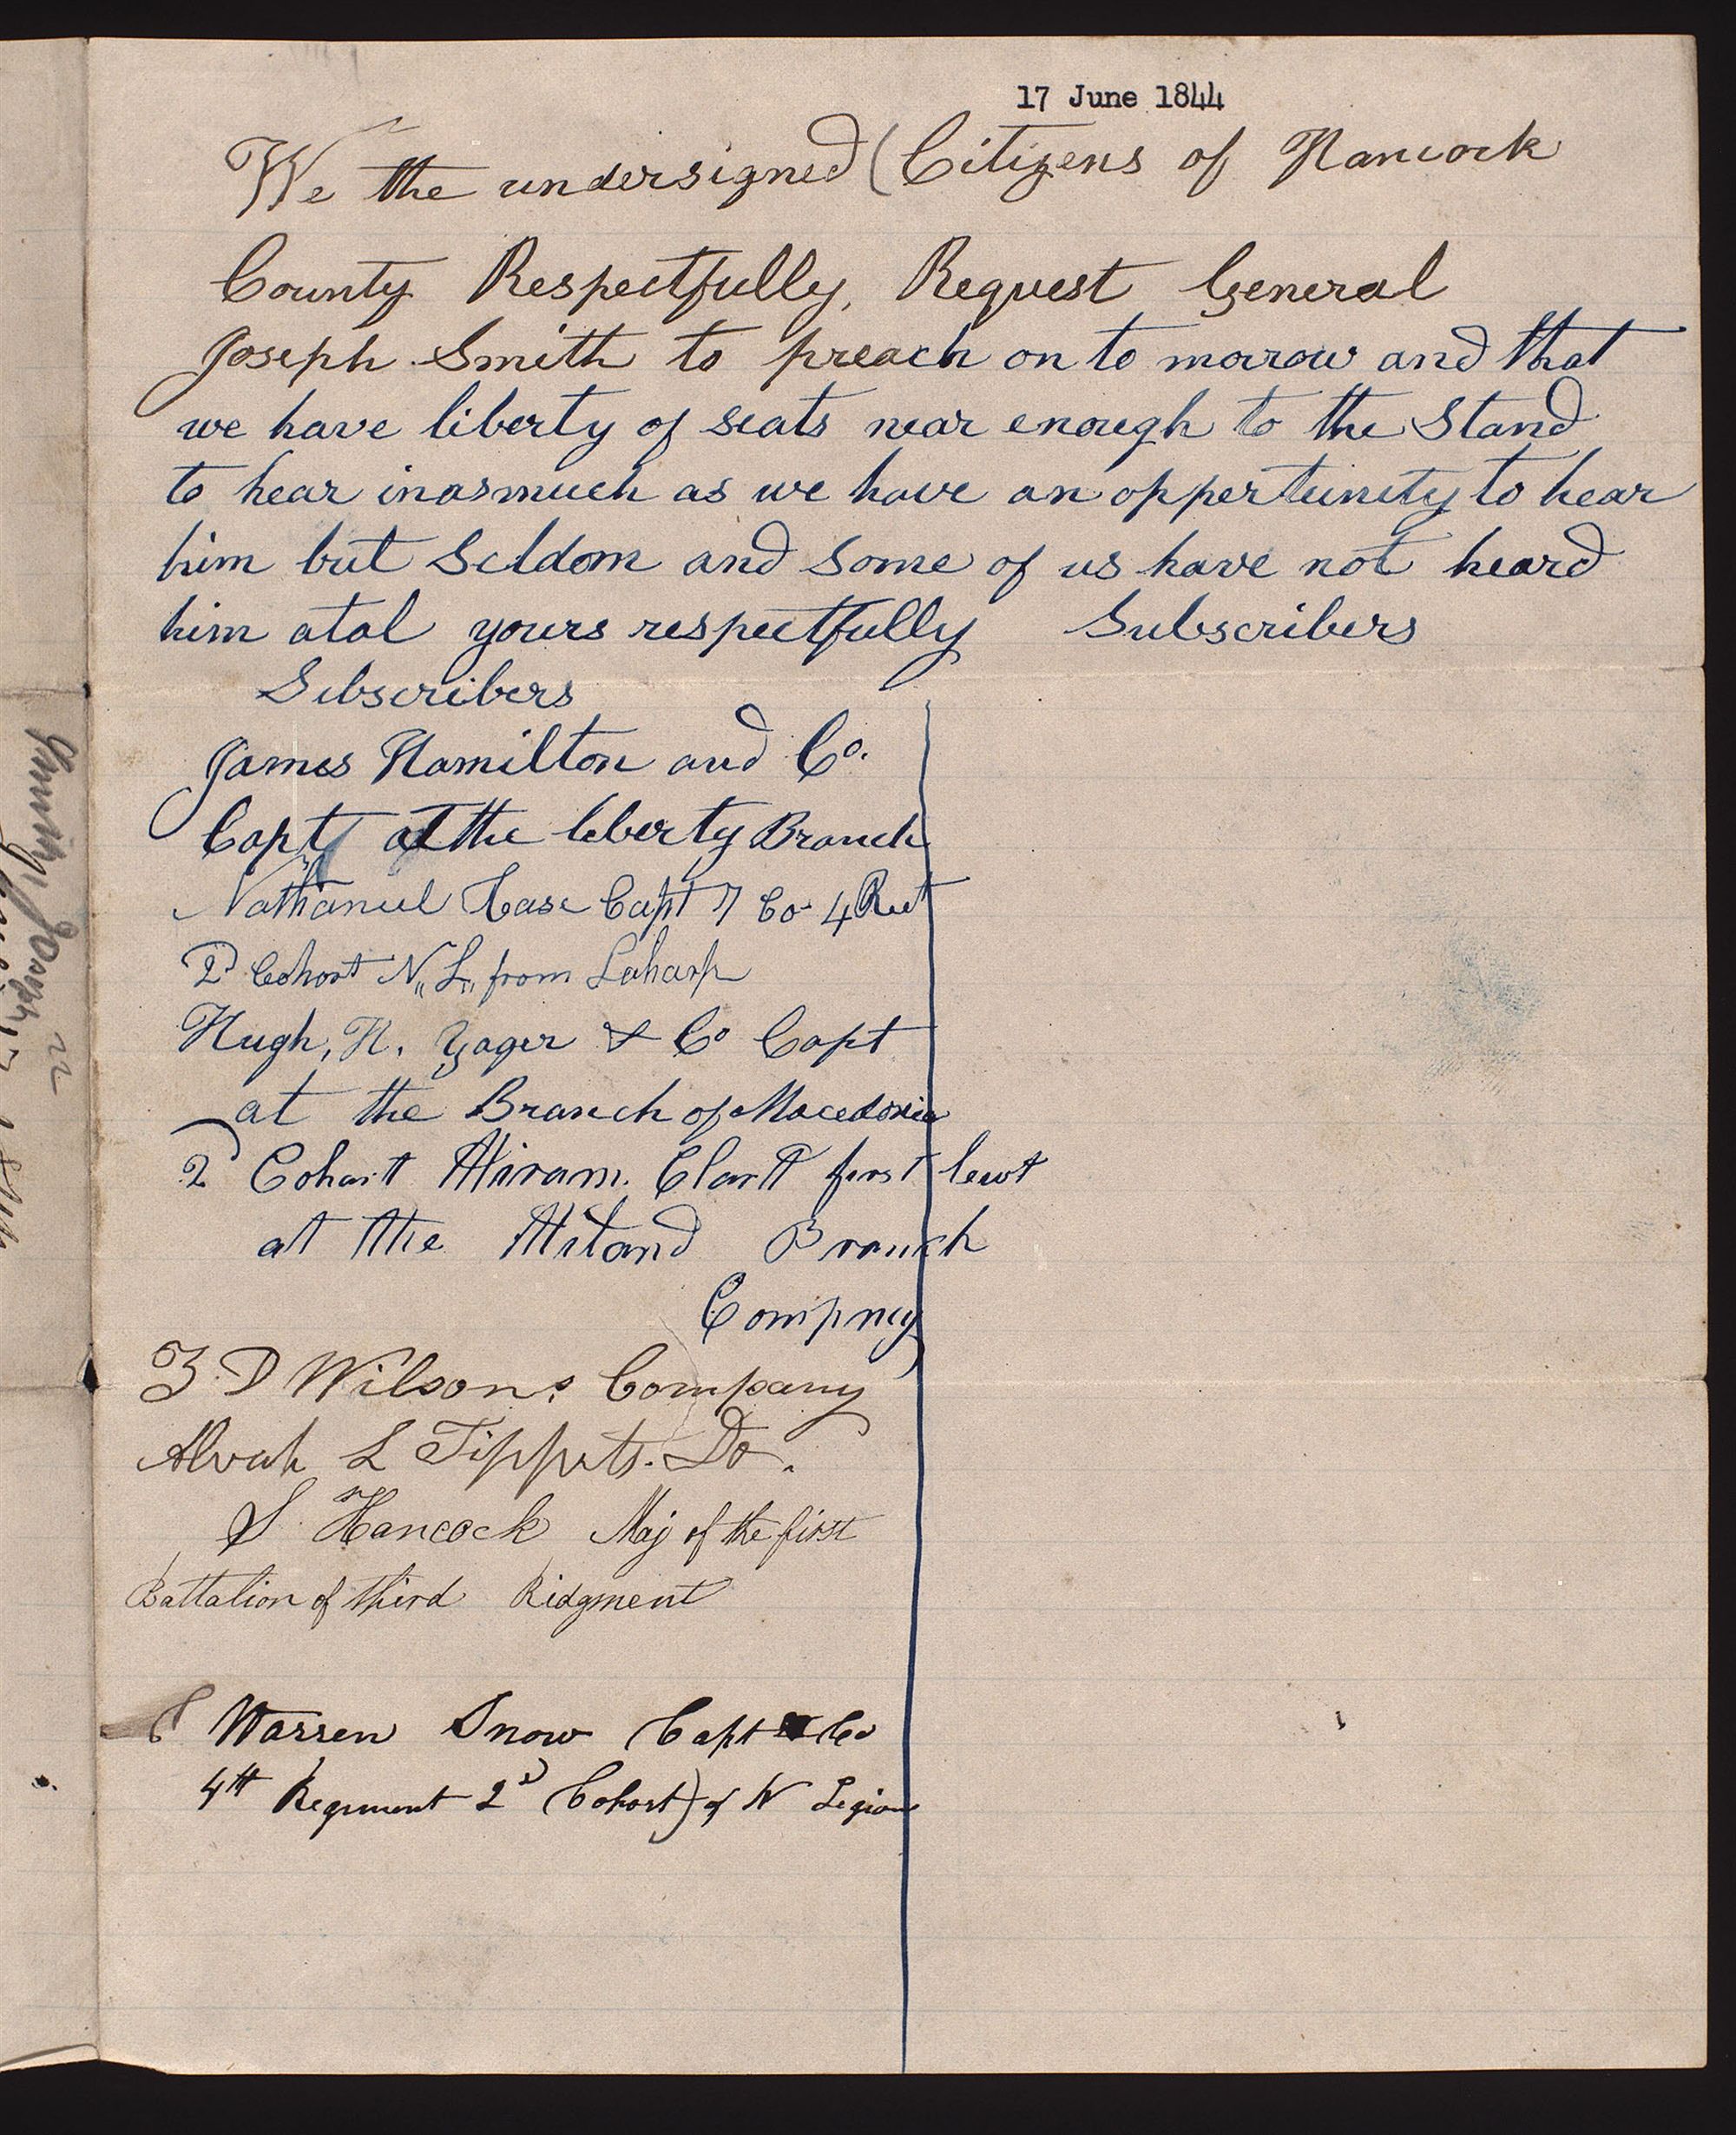 17 June 1844
We the undersigned (Citizens of Hancock
County Respectfully, Request General
Joseph Smith to preach on to morrow and that
we have liberty of seats near enough to the Stand
to hear inasmuch as we have an oppertunity to hear
him but Seldom and Some of us have not heard
him atal yours respectfully Subscribers
Subscribers
James Hamilton and Co.
Capt at the liberty Branch
Nathaniel Case Capt 7 Co 4 Reet
2d Cohort N,, L,, from Laharp
Hugh, H. Yager & Co Capt
at the Branch of Macedonia
2d Cohart Hiram Clartt first leut
at the Hiland Branch
Compney
Z. D Wilsons Company
Alvah L Tippets. Do.
S. Hancock Maj of the first
Battalion of third Ridgment
Warren Snow Capt Co
4th Regiment 2d Cohort) of N Legion
Smith, Joseph